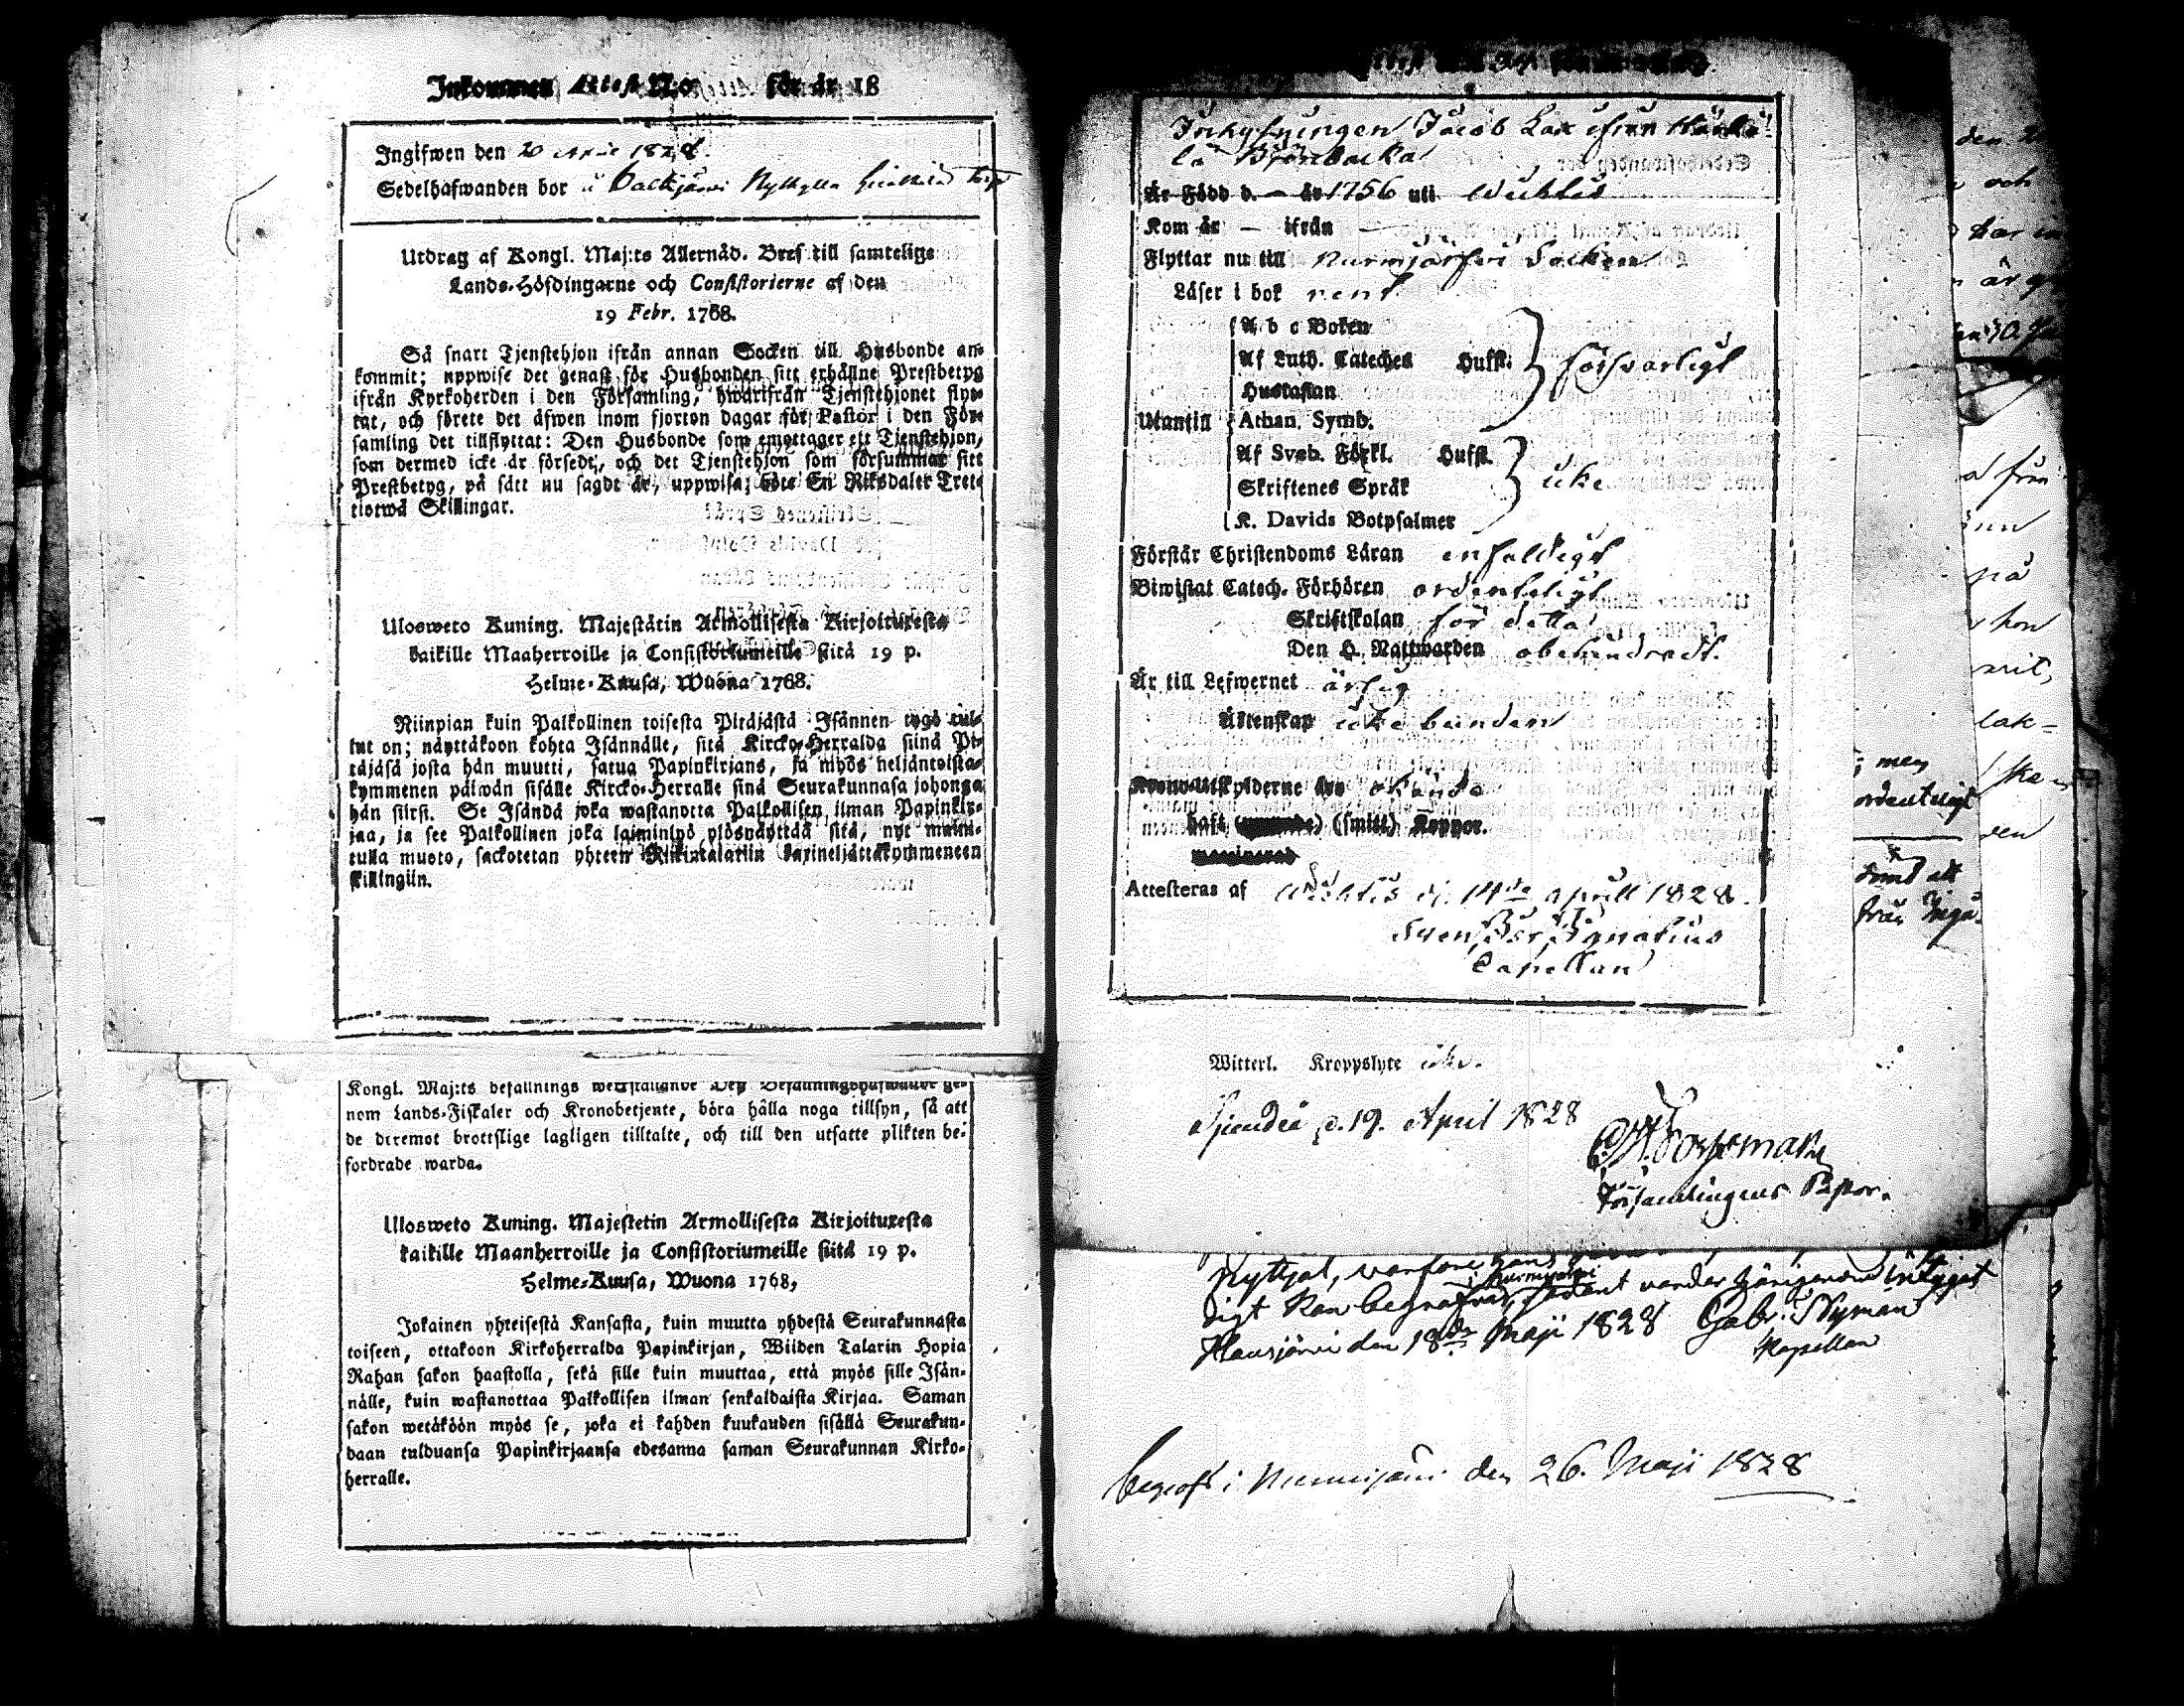 Inkommen Attest N:o för år 18
Ingifwen den 20 April 1828.
Sedelhafwanden bor i Nyckylla
Utdrag af Kongl. Maj:ts Allernåd. Bref till samtelige
Lands-Höfdingarne och Consistorierne af den
19 Febr. 1768.
Så snart Tjenstehjon ifrån annan Socken till Husbonde an-
kommit; uppwise det genast för Husbonden sitt erhållne Prestbetyg
ifrån Kyrkoherden i den Församling, hwarifrån Tjenstehjonet flyt-
tat, och förete det äfwen inom fjorton dagar för Pastor i den För-
samling det tillflyttat: Den Husbonde som emottager ett Tjenstehjon,
som dermed icke är försedt, och det Tjenstehjon som försummar sitt
Prestbetyg, på sätt nu sagdt är, uppwisa; böte En Riksdaler Tret-
tiotwå Skillingar.
Ulosweto Kuning. Majestätin Armollisesta Kirjoituxesta
kaikille Maaherroille ja Consistoriumeille siitä 19 p.
Helme-Kuusa, Wuona 1768.
Niinpian kuin Palkollinen toisesta Pitäjästä Isännen tygö tul-
lut on; näyttäkoon kohta Isännälle, sitä Kircko-Herralda siinä Pi-
täjäsä josta hän muutti, satua Papinkirjans, ja myös neljäntoista-
kymmenen päiwän sisälle Kircko-Herralle sinä Seurakunnasa johonga
hän siirsi. Se Isändä joka wastanotta Palkollisen ilman Papinkir-
jaa, ja see Palkollinen joka laiminlyö ylösnäyttää sitä, nyt maini-
tulla muoto, sackotetan yhteen Riikintalariin kaxineljättäkymmeneen
skillingiin.
Kongl. Maj:ts befallnings werkställande Dess Befallningshafwande ge-
nom Lands-Fiskaler och Kronobetjente, böra hålla noga tillsyn, så att
de deremot brottslige lagligen tilltalte, och till den utsatte plikten be-
fordrade warda.
Ulosweto Kuning. Majestetin Armollisesta Kirjoituxesta
kaikille Maanherroille ja Consistoriumeille siitä 19 p.
Helme-Kuusa, Wuona 1768,
Jokainen yhteisestä Kansasta, kuin muutta yhdestä Seurakunnasta
toiseen, ottakoon Kirkoherralda Papinkirjan, Wiiden Talarin Hopia
Rahan sakon haastolla, sekä sille kuin muuttaa, että myös sille Isän-
nälle, kuin wastanottaa Palkollisen ilman senkaldaista Kirjaa. Saman
sakon wetäköön myös se, joka ei kahden kuukauden sisällä Seurakun-
daan tulduansa Papinkirjaansa edesanna saman Seurakunnan Kirko-
herralle.
Inhysningen Jacob Lax ifrån
Björnbacka
Är Född d. — år 1756 uti Wichtis
Kom år — ifrån —
Flyttar nu till Nurmijärfvi Socken
Läser i bok rent
A b c Boken
Af Luth. Cateches Hufst. försvarligt
Hustaflan
Utantill Athan. Symb.
Af Sveb. Förkl. Hufst.
Skriftenes Språk icke
K. Davids Botpsalmer
Förstår Christendoms Läran enfaldigt
Biwistat Catech. Förhören ordenteligt
Skriftskolan för detta
Den H. Nattwarden obehindradt.
Är till Lefwernet ärlig
Äktenskap icke bunden
Krono-Utskylderne äro okända
haft (smitt) Koppor.
Attesteras af Wichtis d. 14de April 1828.
Sven Ignatius
Capellan
Witterl. Kroppslyte icke.
Sjundeå d. 19. April 1828
Församlingens Pastor.
flyttjat, varföre hans
digt kan begrafvas, sådant varder härigenom intygat
Hausjärvi den 18de Maji 1828 Gabr. Nyman
Kapellan
begrofs i Nurmijärvi den 26. Maji 1828
men
ordenteligt
från Ingå
och
är
från
på
hon